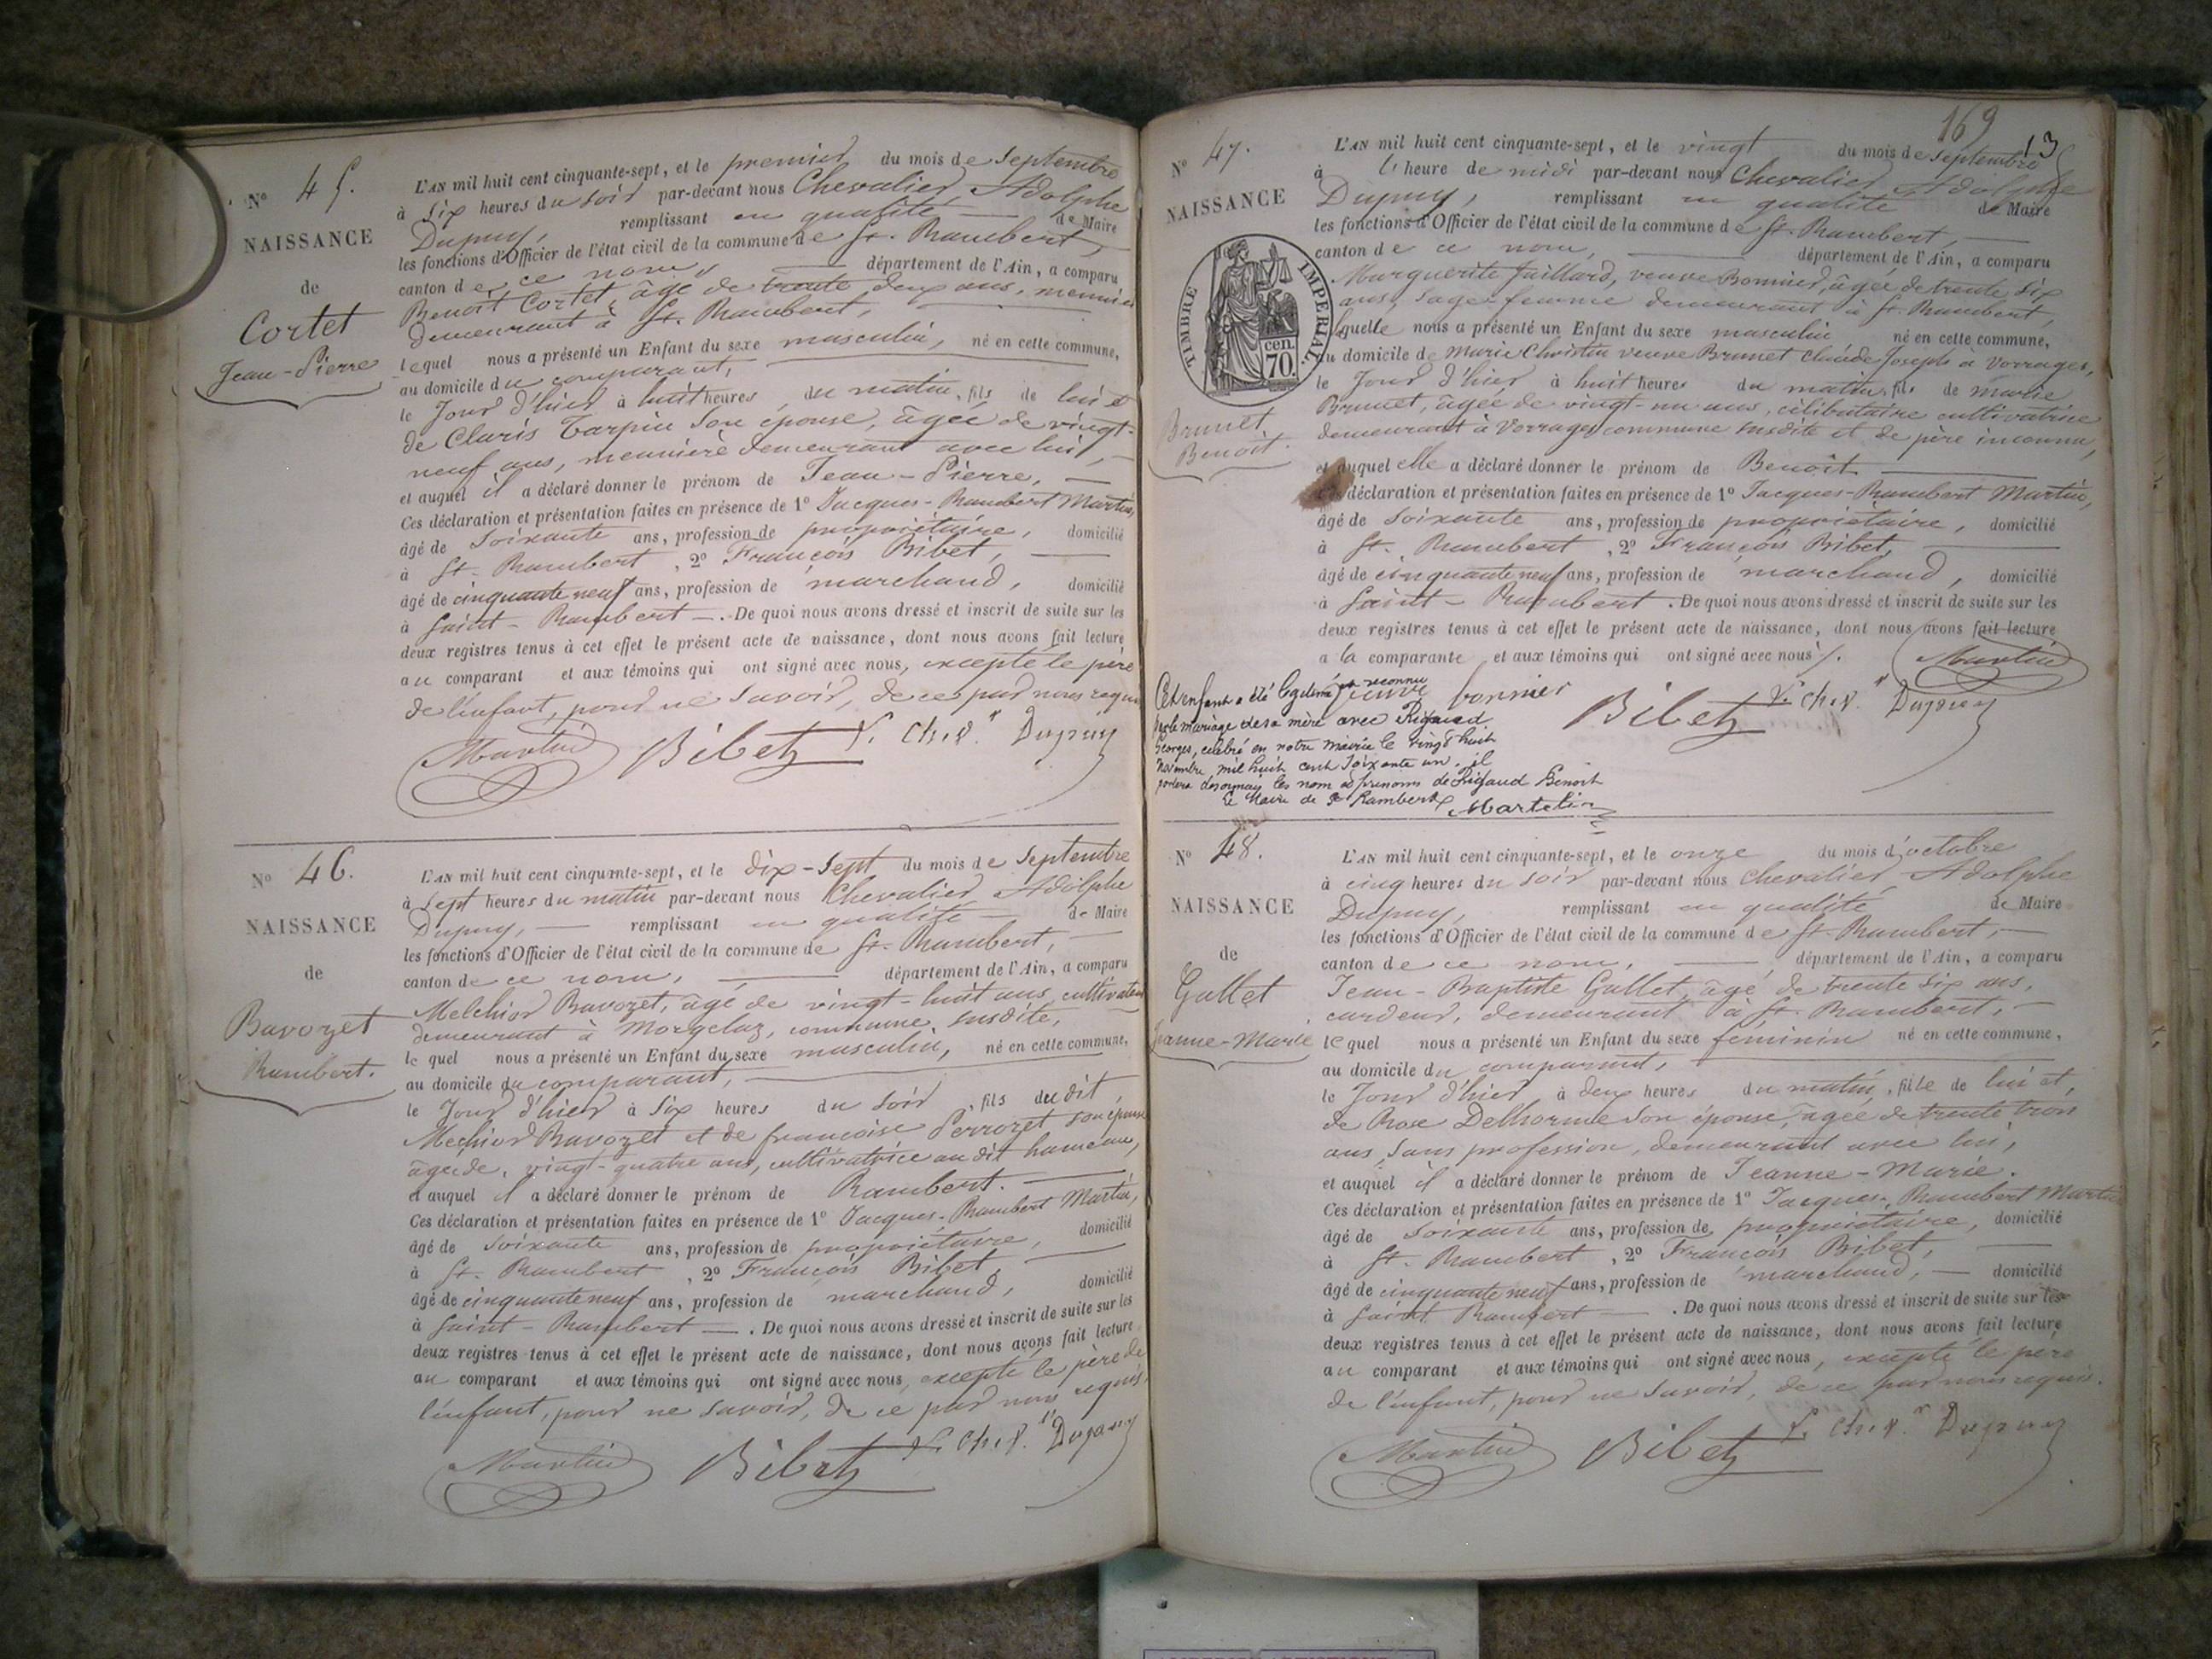 N° 45.
NAISSANCE
de
Cortet
Jean-Pierre
L'AN mil huit cent cinquante-sept, et le premier du mois de Septembre
à Six heures du Soir par-devant nous Chevalier Adolphe
Dupuy, remplissant en qualité de Maire
les fonctions d'Officier de l'état civil de la commune de St. Rambert,
canton de ce nom, département de l'Ain, a comparu
Benoît Cortet, âgé de trente deux ans, meunier
demeurant à St. Rambert,
lequel nous a présenté un Enfant du sexe masculin, né en cette commune,
au domicile du comparant,
le Jour d'hier à huit heures du matin, fils de lui et
de Claris Tarpin Son épouse, âgée de vingt-
neuf ans, meunière demeurant avec lui,
et auquel il a déclaré donner le prénom de Jean-Pierre,
Ces déclaration et présentation faites en présence de 1° Jacques-Rambert Martin,
âgé de Soixante ans, profession de propriétaire, domicilié
à St. Rambert, 2° François Bibet,
âgé de cinquante neuf ans, profession de marchand, domicilié
à Saint-Rambert. De quoi nous avons dressé et inscrit de suite sur les
deux registres tenus à cet effet le présent acte de naissance, dont nous avons fait lecture
au comparant et aux témoins qui ont signé avec nous, excepté le père
de l'enfant, pour ne Savoir, de ce par nous requis
Martin Bibet Chev. Dupuy
N° 46.
NAISSANCE
de
Bavozet
Rambert.
L'AN mil huit cent cinquante-sept, et le dix-Sept du mois de Septembre
à Sept heures du matin par-devant nous Chevalier Adolphe
Dupuy, remplissant en qualité de Maire
les fonctions d'Officier de l'état civil de la commune de St. Rambert,
canton de ce nom, département de l'Ain, a comparu
Melchior Bavozet, âgé de vingt-huit ans, cultivateur
demeurant à Morgelaz, commune Susdite,
lequel nous a présenté un Enfant du sexe masculin, né en cette commune,
au domicile du comparant,
le Jour d'hier à Six heures du Soir, fils dudit
Mechior Bavozet et de françoise Perrozet son épouse
âgée de vingt-quatre ans, cultivatrice au dit hameau,
et auquel il a déclaré donner le prénom de Rambert.
Ces déclaration et présentation faites en présence de 1° Jacques-Rambert Martin,
âgé de Soixante ans, profession de propriétaire, domicilié
à St. Rambert, 2° François Bibet,
âgé de cinquante neuf ans, profession de marchand, domicilié
à Saint-Rambert. De quoi nous avons dressé et inscrit de suite sur les
deux registres tenus à cet effet le présent acte de naissance, dont nous avons fait lecture
au comparant et aux témoins qui ont signé avec nous, excepté le père de
l'enfant, pour ne Savoir, de ce par nous requis.
Martin Bibet Chev. Dupuy
169
13
N° 47.
NAISSANCE
TIMBRE IMPÉRIAL.
70 cen.
Brunet
Benoît.
L'AN mil huit cent cinquante-sept, et le vingt du mois de Septembre
à l'heure de midi par-devant nous Chevalier Adolphe
Dupuy, remplissant en qualité de Maire
les fonctions d'Officier de l'état civil de la commune de St. Rambert,
canton de ce nom, département de l'Ain, a comparu
Marguerite Juillard, veuve Bonnier, âgée de trente Six
ans, Sage femme demeurant à St. Rambert,
laquelle nous a présenté un Enfant du sexe masculin né en cette commune,
au domicile de Marie Christin veuve Brunet Claude Joseph a Vorrages,
le Jour d'hier à huit heures du matin, fils de Marie
Brunet, âgée de vingt-un ans, célibataire cultivatrice
demeurant à Vorrages commune susdite et de père inconnu,
et auquel elle a déclaré donner le prénom de Benoît
Ces déclaration et présentation faites en présence de 1° Jacques-Rambert Martin,
âgé de Soixante ans, profession de propriétaire, domicilié
à St. Rambert, 2° François Bibet,
âgé de cinquante neuf ans, profession de marchand, domicilié
à Saint-Rambert. De quoi nous avons dressé et inscrit de suite sur les
deux registres tenus à cet effet le présent acte de naissance, dont nous avons fait lecture
a la comparante et aux témoins qui ont signé avec nous.
Martin
bonnier Bibet Chev. Dupuy
Cet enfant a été légitimé et reconnu
par le mariage de sa mère avec Rigaud
Georges, célébré en notre mairie le vingt huit
Novembre mil huit cent soixante un. il
portera désormais les nom et prénoms de Rigaud Benoît
Le Maire de St Rambert
Martelin
N° 48.
NAISSANCE
de
Gallet
Jeanne-Marie
L'AN mil huit cent cinquante-sept, et le onze du mois d'octobre
à cinq heures du Soir par-devant nous Chevalier Adolphe
Dupuy, remplissant en qualité de Maire
les fonctions d'Officier de l'état civil de la commune de St. Rambert,
canton de ce nom, département de l'Ain, a comparu
Jean-Baptiste Gallet, âgé de trente six ans,
cardeur, demeurant à St. Rambert,
lequel nous a présenté un Enfant du sexe féminin né en cette commune,
au domicile du comparant,
le Jour d'hier à deux heures du matin, fille de lui et
de Rose Delhorme Son épouse, âgée de trente trois
ans, Sans profession, demeurant avec lui,
et auquel il a déclaré donner le prénom de Jeanne-Marie.
Ces déclaration et présentation faites en présence de 1° Jacques-Rambert Martin
âgé de Soixante ans, profession de propriétaire, domicilié
à St. Rambert, 2° François Bibet,
âgé de cinquante neuf ans, profession de marchand, domicilié
à Saint Rambert. De quoi nous avons dressé et inscrit de suite sur les
deux registres tenus à cet effet le présent acte de naissance, dont nous avons fait lecture
au comparant et aux témoins qui ont signé avec nous, excepté le père
de l'enfant, pour ne Savoir, de ce par nous requis.
Martin Bibet Chev. Dupuy